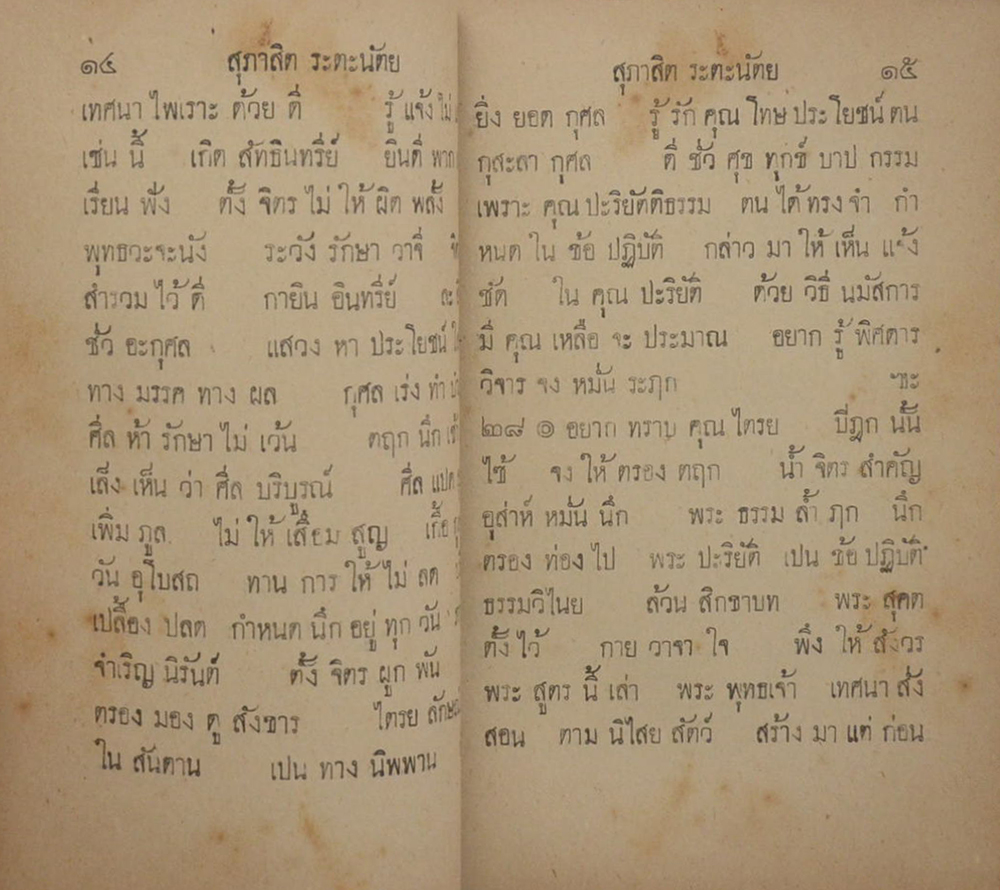 ๑๔ สุภาสิต ระตะนัตัย
เทศนา ไพเราะ ด้วย ดี รู้ แจ้ง ไม่
เช่น นี้ เกิด สัทธินทรีย์ ยินดี พาก
เรียน ฟัง ตั้ง จิตร ไม่ ให้ ผิด พลั้ง
พุทธวะจะนัง ระวัง รักษา วาจี
สำรวม ไว้ ดี กายิน อินทรีย์ ละ
ชั่ว อะกุศล แสวง หา ประโยชน์
ทาง มรรค ทาง ผล กุศล เร่ง ทำ
ศีล ห้า รักษา ไม่ เว้น ตฤก นึก
เล็ง เห็น ว่า ศีล บริบูรณ์ ศีล แปด
เพิ่ม ภูล ไม่ ให้ เสื่อม สูญ เกื้อ
วัน อุโบสถ ทาน การ ให้ ไม่ ลด
เปลื้อง ปลด กำหนด นึก อยู่ ทุก วัน
จำเริญ นิรันต์ ตั้ง จิตร ผูก พัน
ตรอง มอง ดู สังขาร ไตรย ลักษ
ใน สันดาน เปน ทาง นิพพาน
สุภาสิต ระตะนัตัย ๑๕
ยิ่ง ยอด กุศล รู้ รัก คุณ โทษ ประโยชน์ ตน
กุสะลา กุศล ดี ชั่ว ศุข ทุกข์ บาป กรรม
เพราะ คุณ ปะริยัติติธรรม ตน ได้ ทรง จำ กำ
หนด ใน ข้อ ปฏิบัติ กล่าว มา ให้ เห็น แจ้ง
ชัด ใน คุณ ปะริยัติ ด้วย วิธี นมัสการ
มี คุณ เหลือ จะ ประมาณ อยาก รู้ พิศดาร
วิจาร จง หมั่น ระฦก ฯะ
๒๘ ๏ อยาก ทราบ คุณ ไตรย ปิฎก นั้น
ไซ้ จง ให้ ตรอง ตฤก น้ำ จิตร สำคัญ
อุส่าห์ หมั่น นึก พระ ธรรม ล้ำ ฦก นึก
ตรอง ท่อง ไป พระ ปะริยัติ เปน ข้อ ปฏิบัติ
ธรรมวิไนย ล้วน สิกขาบท พระ สุคต
ตั้ง ไว้ กาย วาจา ใจ พึง ให้ สังวร
พระ สูตร นี้ เล่า พระ พุทธเจ้า เทศนา สั่ง
สอน ตาม นิไสย สัตว์ สร้าง มา แต่ ก่อน